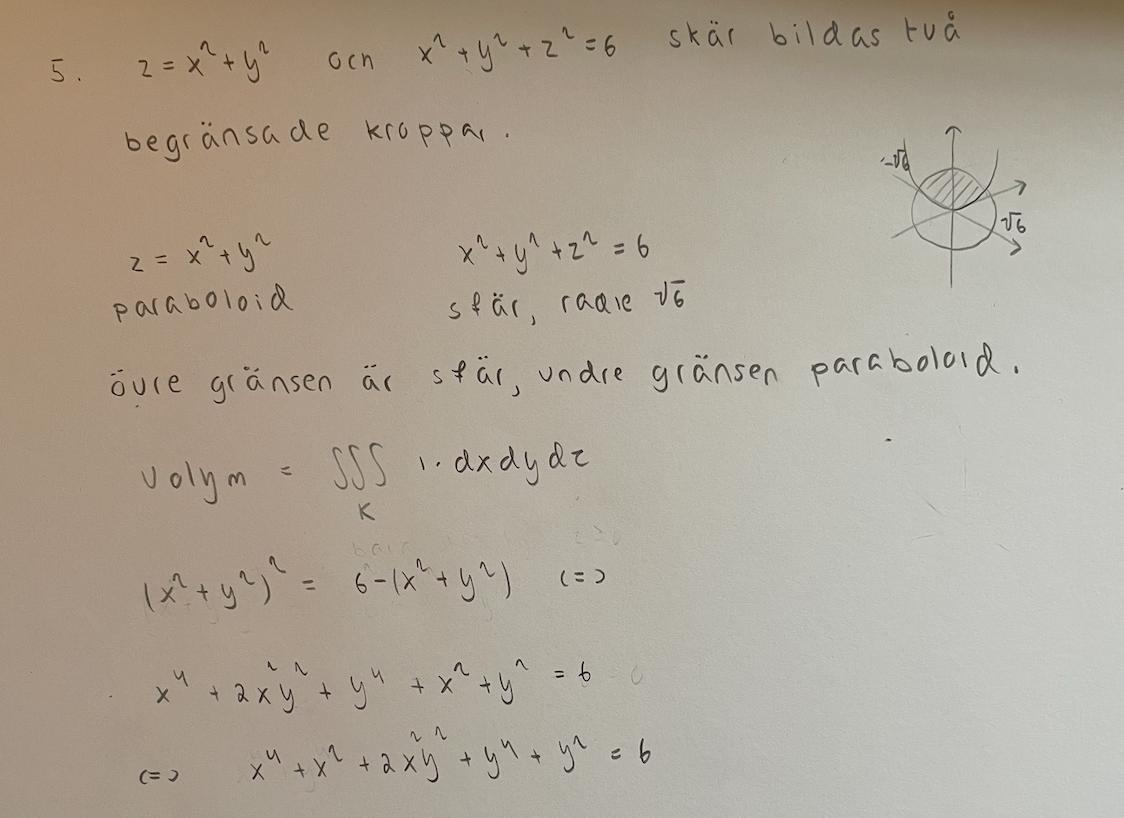 5. z = x² + y² och x² + y² + z² = 6 skär bildas två
begränsade kroppar.
-√6
√6
z = x² + y² x² + y² + z² = 6
paraboloid sfär, radie √6
övre gränsen är sfär, undre gränsen paraboloid.
Volym = ∭ 1· dxdydz
K
(x² + y²)² = 6-(x² + y²) (=)
x⁴ + 2x²y² + y⁴ + x² + y² = 6
(=) x⁴ + x² + 2x²y² + y⁴ + y² = 6